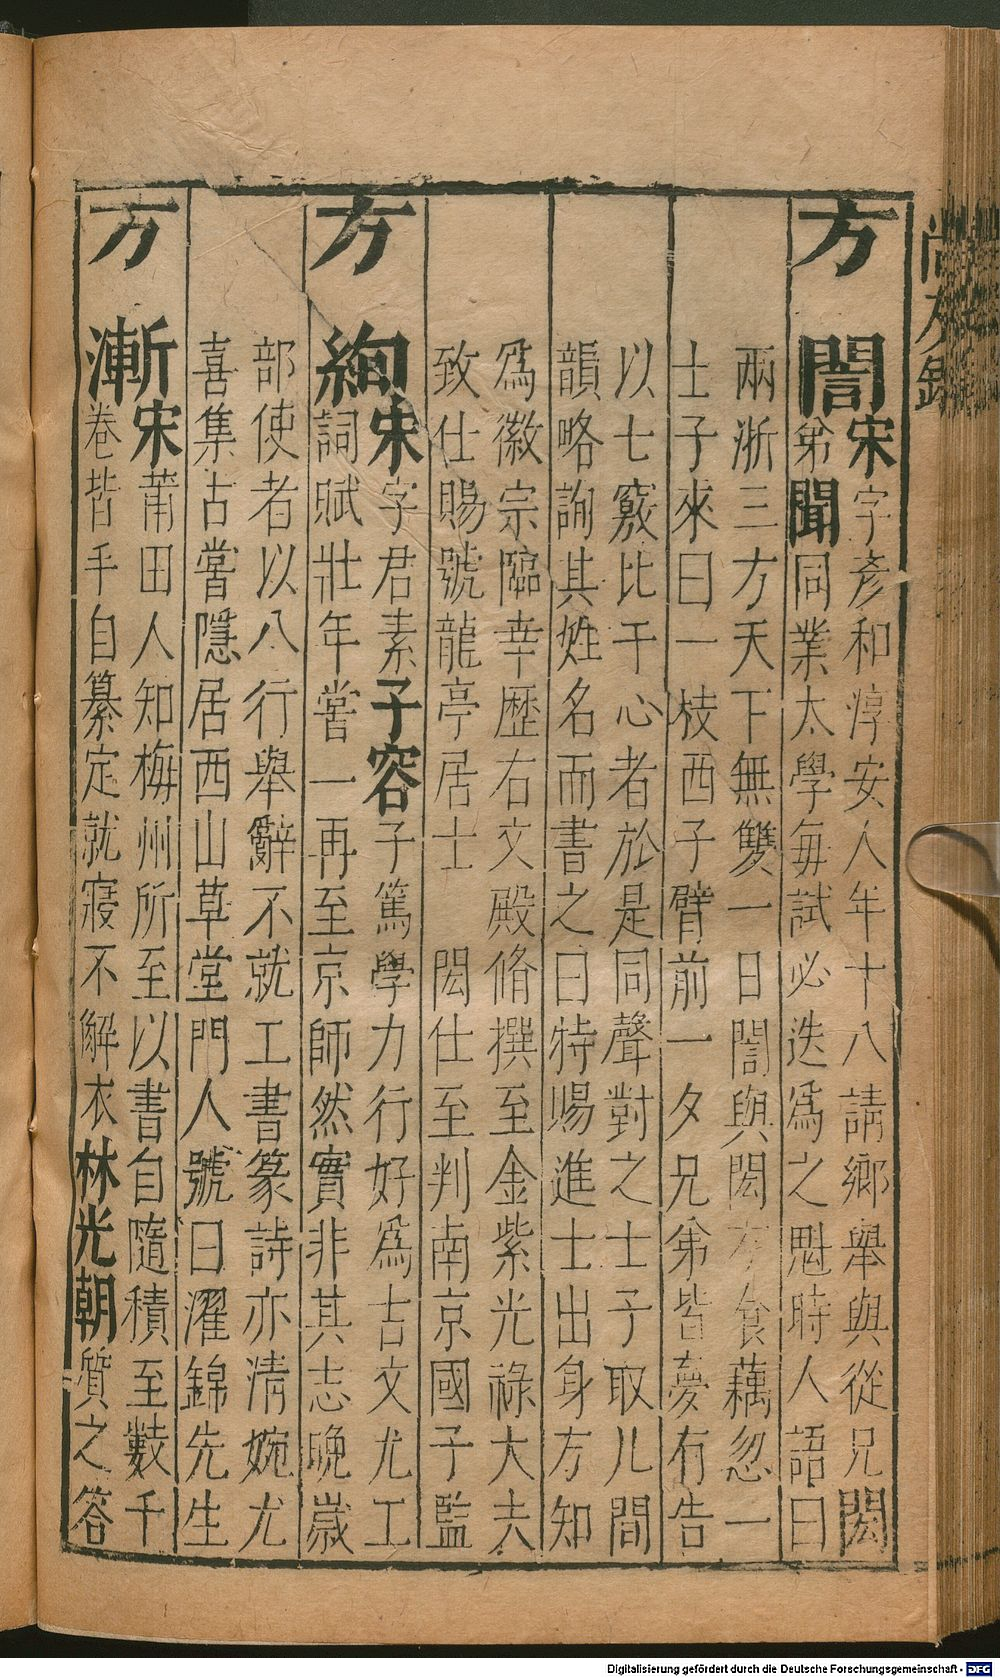 方誾宋字彥和淳安人年十八請鄉舉與從兄閎
弟聞同業太學每試必迭爲之魁時人語曰
兩浙三方天下無雙一日誾與閎方食藕忽一
士子來曰一枝西子臂前一夕兄弟皆夢有告
以七竅比干心者於是同聲對之士子取几間
韻略詢其姓名而書之曰特賜進士出身方知
爲徽宗臨幸歷右文殿脩撰至金紫光祿大夫
致仕賜號龍亭居士 閎仕至判南京國子監
方絢宋字君素子容子篤學力行好爲古文尤工
詞賦壯年嘗一再至京師然實非其志晚歲
部使者以八行舉辭不就工書篆詩亦清婉尤
喜集古嘗隱居西山草堂門人號曰濯錦先生
方漸宋莆田人知梅州所至以書自隨積至數千
卷皆手自纂定就寢不解衣林光朝質之答
尚友錄
Digitalisierung gefördert durch die Deutsche Forschungsgemeinschaft - DFG